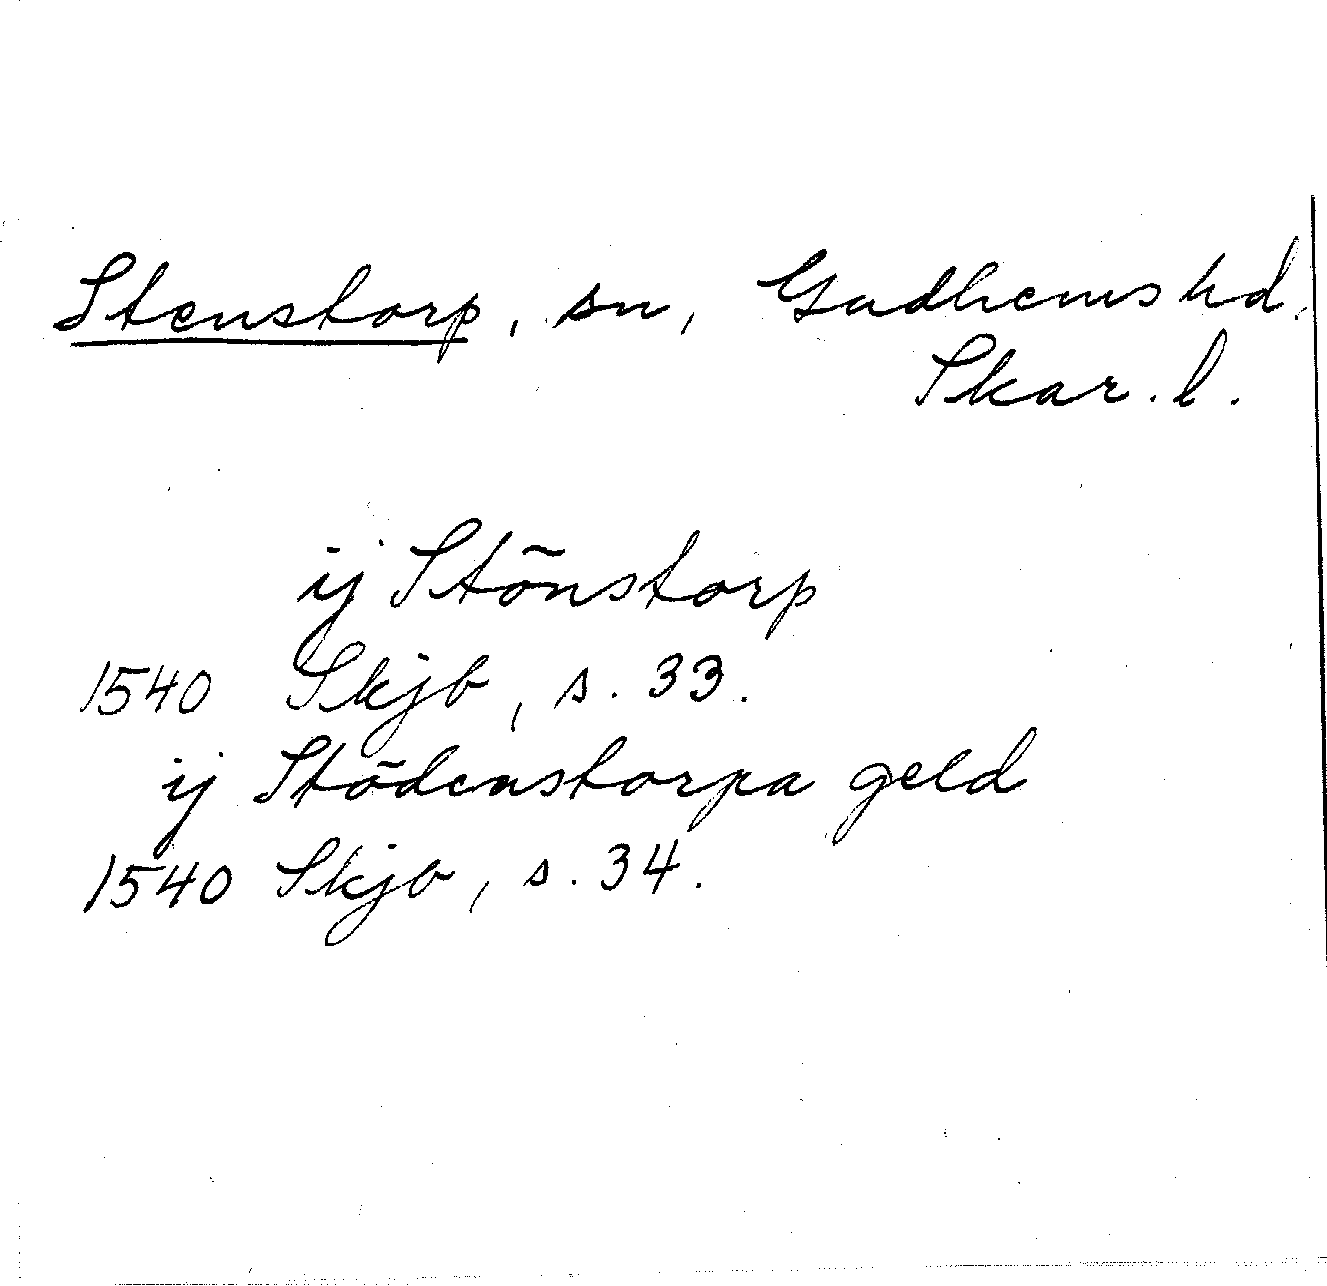 Stenstorp, sn, Gudhems hd.
Skar. l.
ij Stõnstorp
1540 Skjb, s. 33.
ij Stödenstorpa geld
1540 Skjb, s. 34.